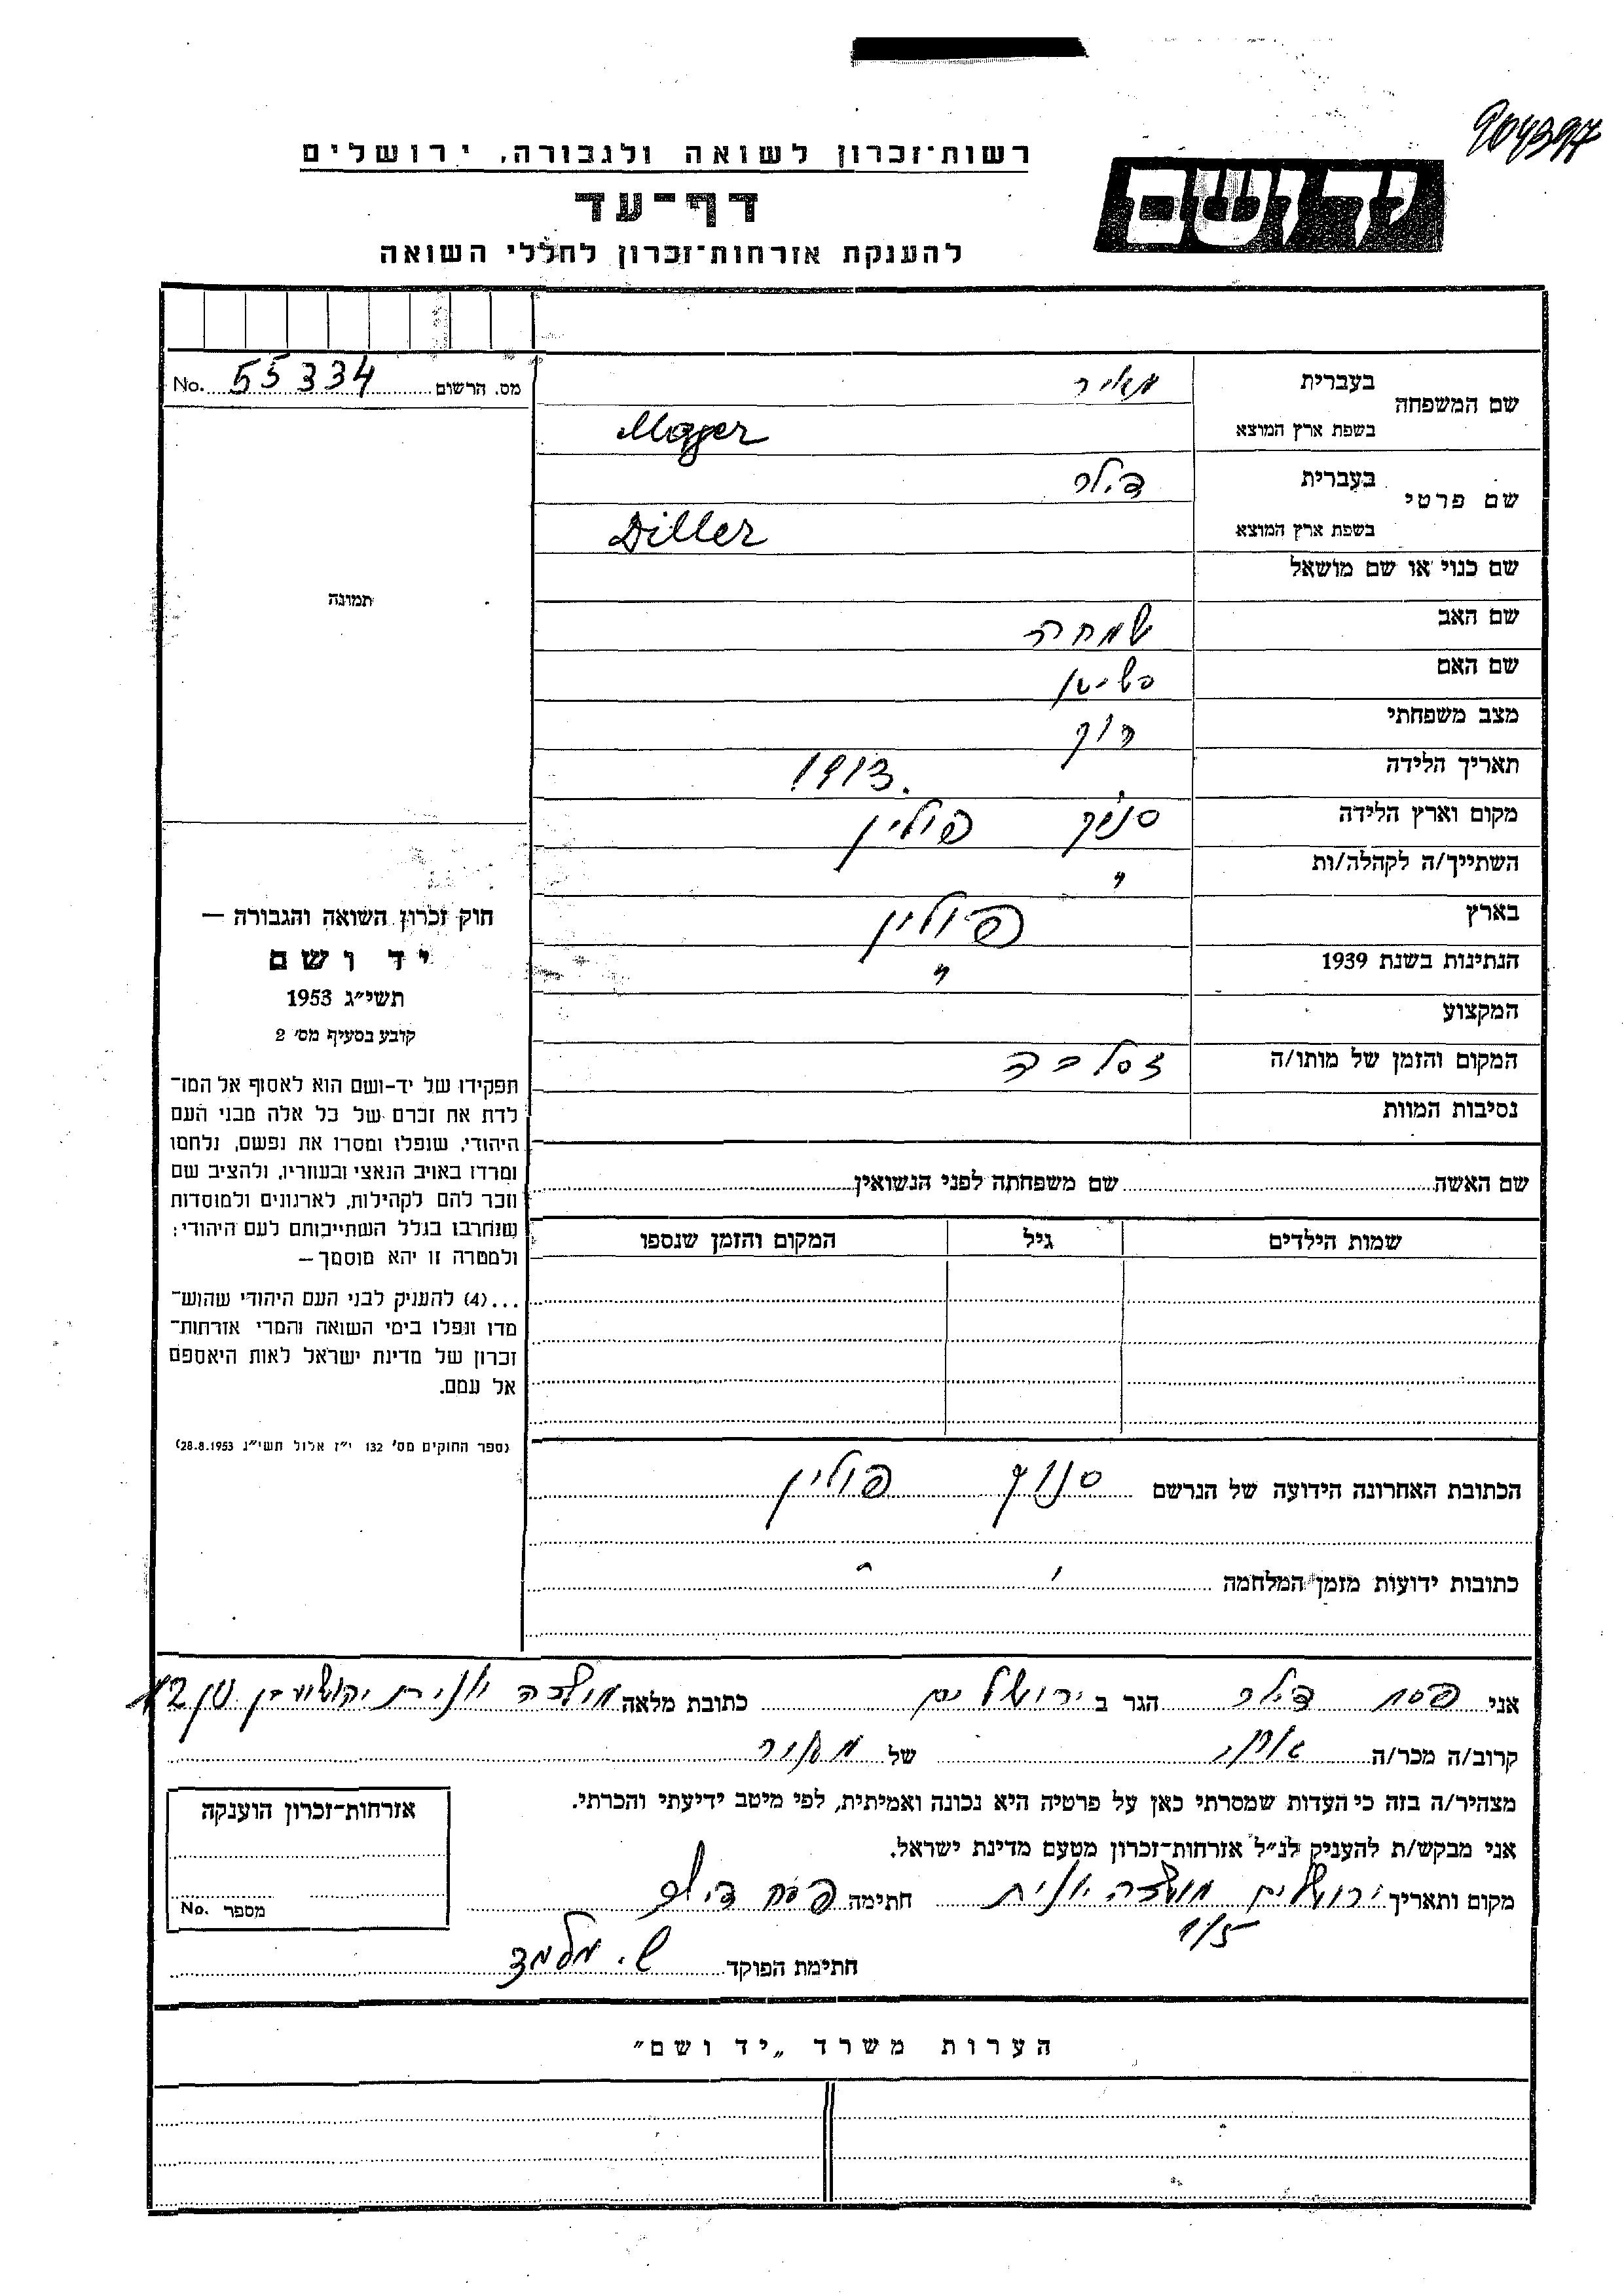 904397
רשות־זכרון לשואה ולגבורה, ירושלים
יד ושם
דף־עד
להענקת אזרחות־זכרון לחללי השואה
מס. הרשום 55334 No.
שם המשפחה
בעברית מאיר
בשפת ארץ המוצא Majer
שם פרטי
בעברית דילר
בשפת ארץ המוצא Diller
שם כנוי או שם מושאל
שם האב שמחה
שם האם
מצב משפחתי רוק
תאריך הלידה 1913
מקום וארץ הלידה סנוק פולין
השתייך/ה לקהלה/ות "
בארץ פולין
הנתינות בשנת 1939 "
המקצוע
המקום והזמן של מותו/ה
נסיבות המוות
תמונה
חוק זכרון השואה והגבורה —
יד ושם
תשי״ג 1953
קובע בסעיף מס׳ 2
תפקידו של יד-ושם הוא לאסוף אל המו־
לדת את זכרם של כל אלה מבני העם
היהודי, שנפלו ומסרו את נפשם, נלחמו
ומרדו באויב הנאצי ובעוזריו, ולהציב שם
וזכר להם לקהילות, לארגונים ולמוסדות
שנחרבו בגלל השתייכותם לעם היהודי;
ולמטרה זו יהא מוסמך —
...(4) להעניק לבני העם היהודי שהוש־
מדו ונפלו בימי השואה והמרי אזרחות־
זכרון של מדינת ישראל לאות היאספם
אל עמם.
(ספר החוקים מס׳ 132 י״ז אלול תשי״ג 28.8.1953)
שם האשה שם משפחתה לפני הנשואין
שמות הילדים גיל המקום והזמן שנספו
הכתובת האחרונה הידועה של הנרשם סנוק פולין
כתובות ידועות מזמן המלחמה " "
אני פסח דילר הגר ב ירושלים כתובת מלאה מושבה יונית
קרוב/ה מכר/ה של מאיר
מצהיר/ה בזה כי העדות שמסרתי כאן על פרטיה היא נכונה ואמיתית, לפי מיטב ידיעתי והכרתי.
אני מבקש/ת להעניק לנ״ל אזרחות־זכרון מטעם מדינת ישראל.
מקום ותאריך ירושלים מושבה יונית חתימה פסח דילר
חתימת הפוקד ש. מלמד
אזרחות־זכרון הוענקה
מספר No.
הערות משרד „יד ושם״